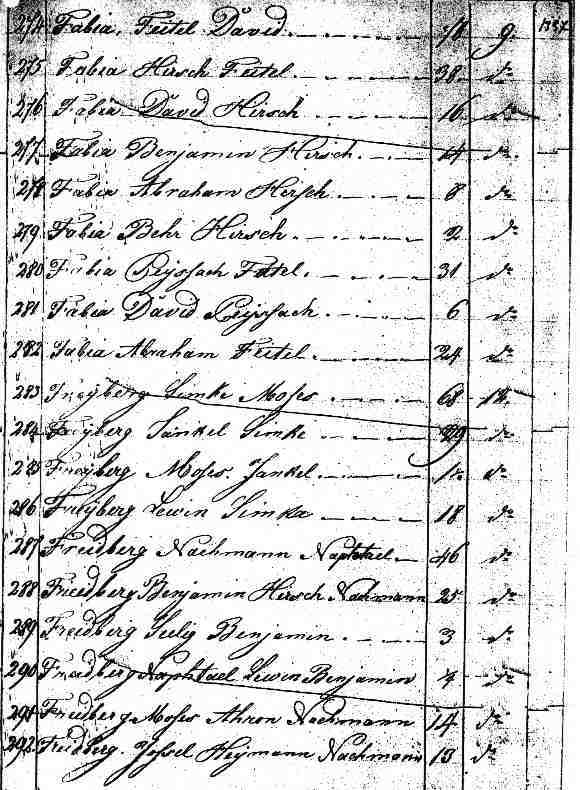 274 Fabia, Feitel David 78 9
275 Fabia Hirsch Feitel 38 do
276 Fabia David Hirsch 16 do
277 Fabia Benjamin Hirsch 14 do
278 Fabia Abraham Hirsch 8 do
279 Fabia Behr Hirsch 2 do
280 Fabia Peyssach Feitel 31 do
281 Fabia David Peyssach 6 do
282 Fabia Abraham Feitel 24 do
283 Freyberg Simke Moses 68 12
284 Freyberg Jankel Simke 29 do
285 Freyberg Moses Jankel do
286 Freyberg Lewin Simke 18 do
287 Freidberg Nachmann Naphtael 46 do
288 Freidberg Benjamin Hirsch Nachmann 25 do
289 Freidberg Seelig Benjamin 3 do
290 Freidberg Naphtael Lewin Benjamin 4 do
291 Freidberg Moses Ahron Nachmann 14 do
292 Freidberg Jossel Heymann Nachmann 13 do